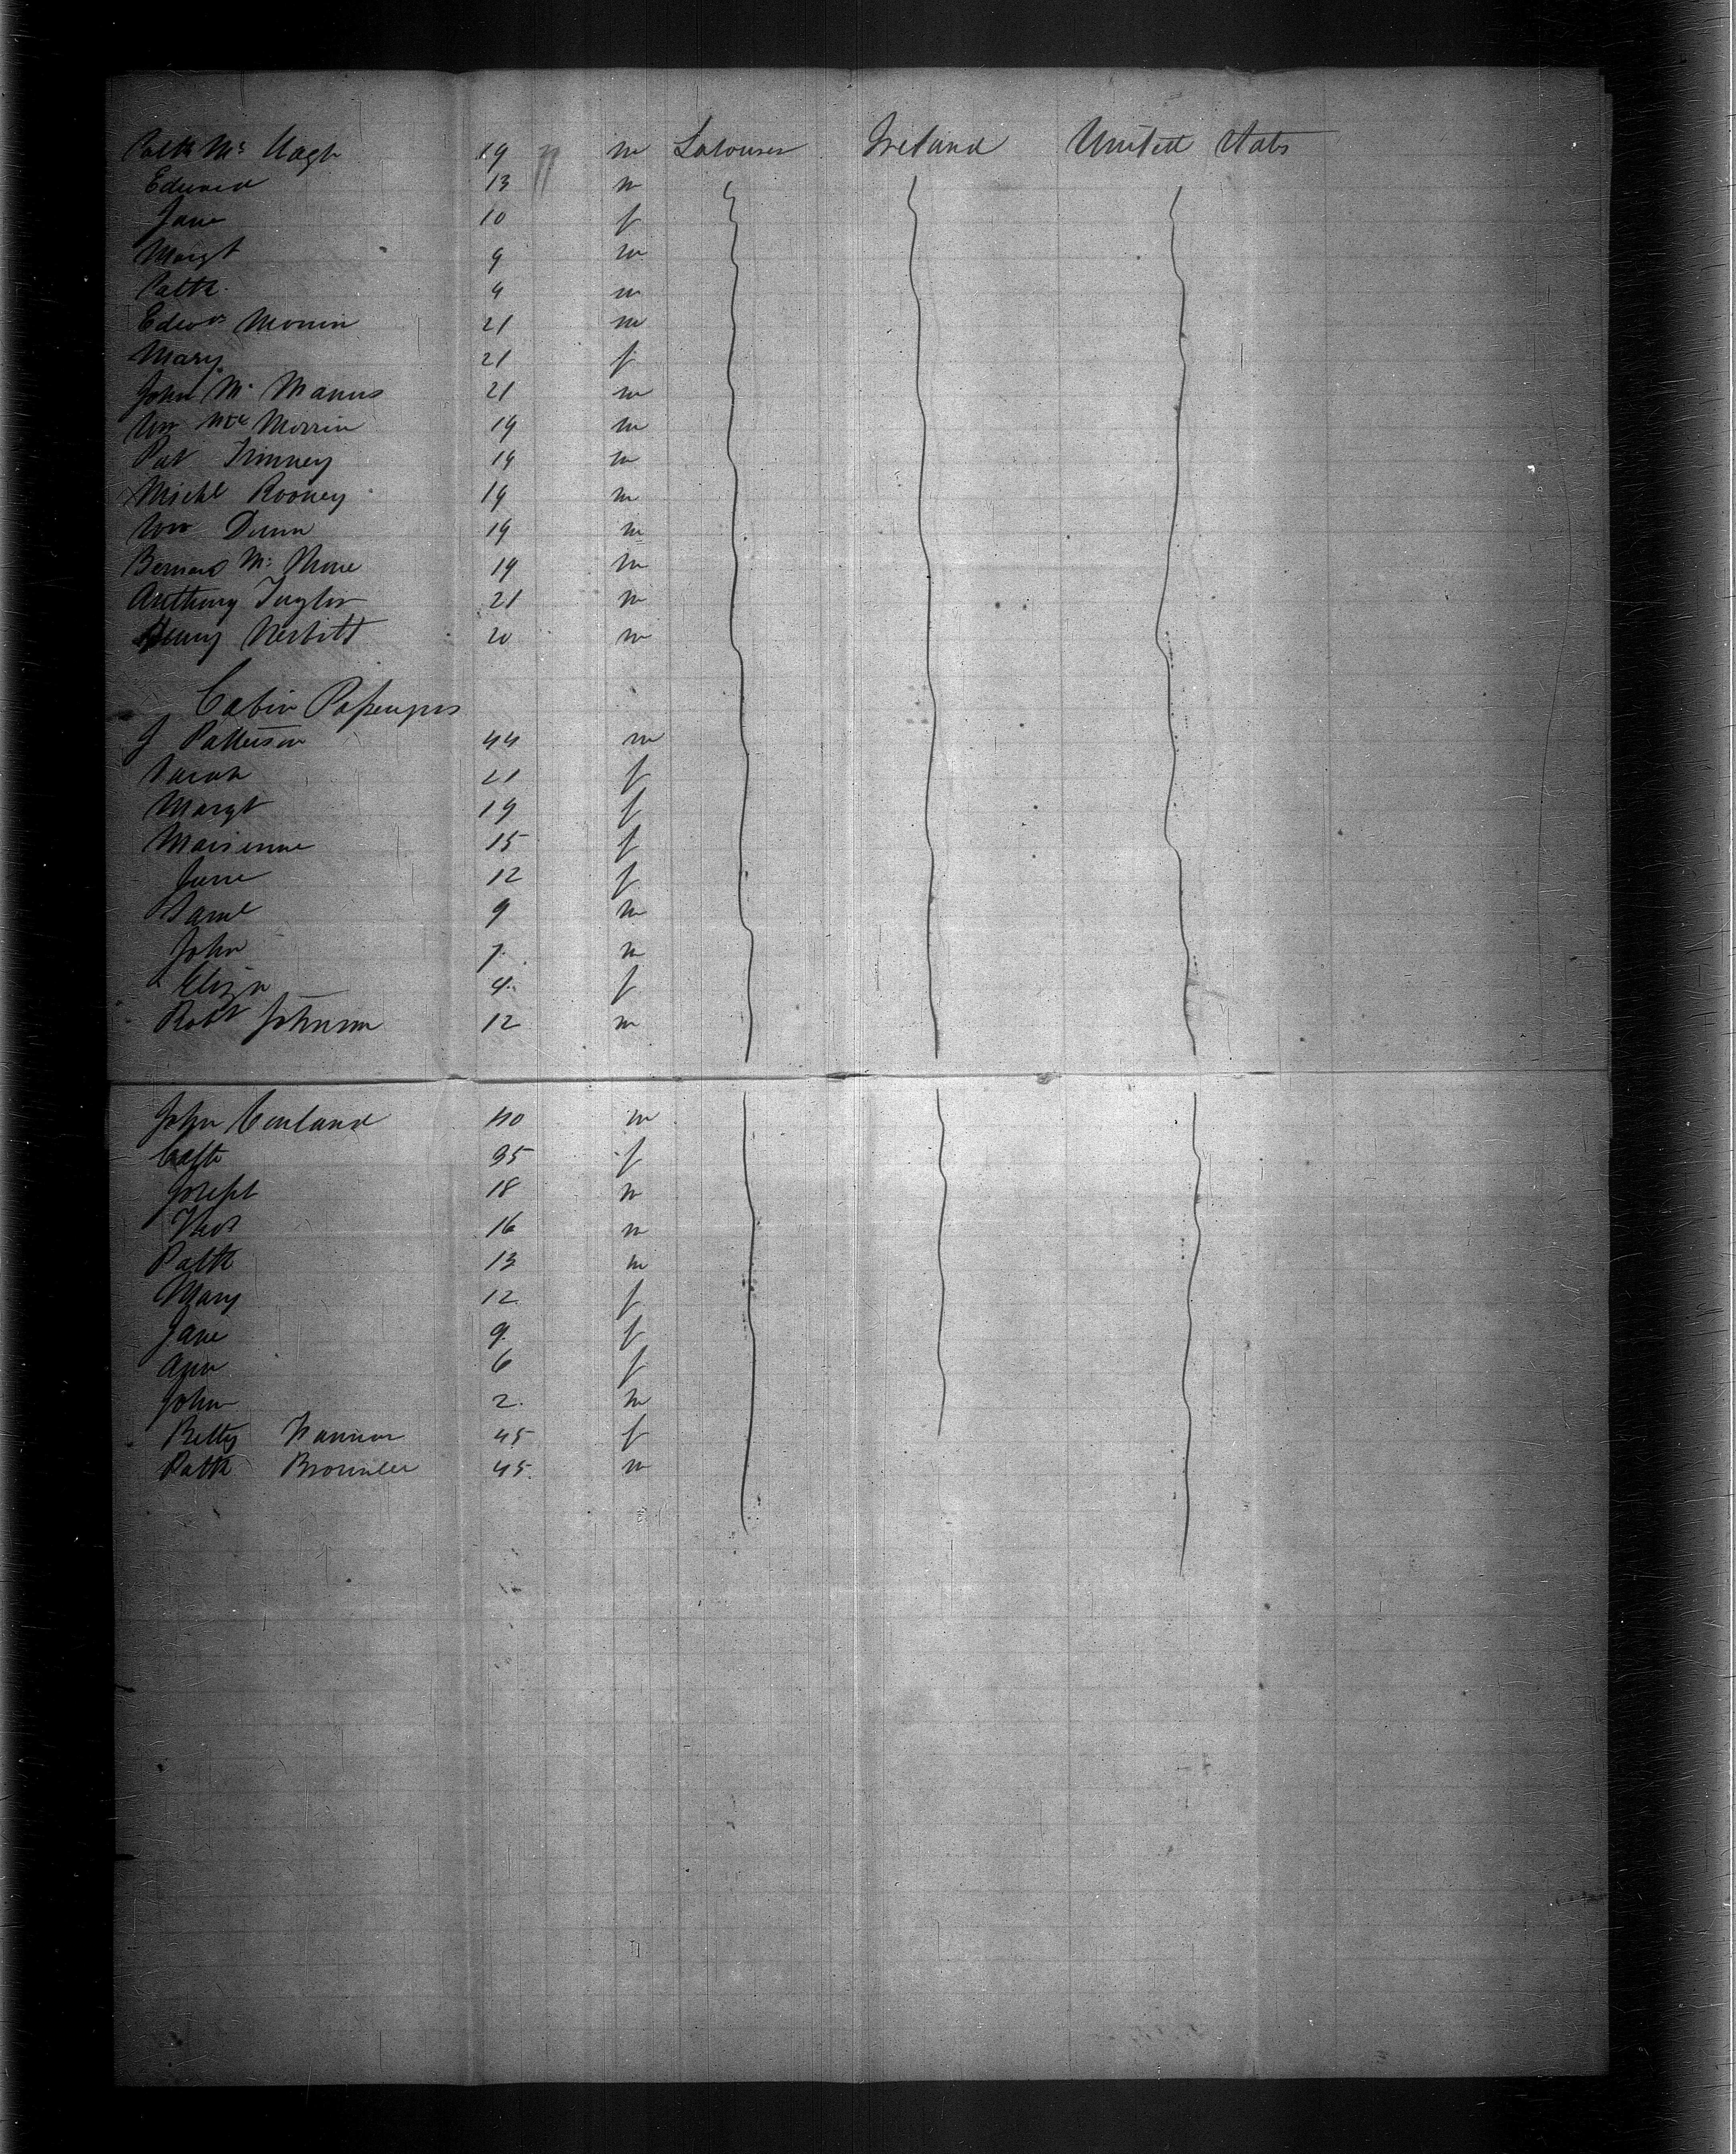 Patk Mc Hagh 19 m Labourer Ireland United States
Edward 13 m
Jane 10 f
Margt 9 m
Patk 9 m
Edwd Morrin 21 m
Mary 21 f
John Mc Manus 21 m
Wm Mc Morrin 19 m
Pat Timney 19 m
Michl Rooney 19 m
Wm Dunn 19 m
Bernard Mc 19 m
Anthony Taylor 21 m
Henry Nesbitt 20 m
Cabin Passengers
J Patterson 44 m
Sarah 21 f
Margt 19 f
15 f
Jane 12 f
Saml 9 m
John 7 m
Eliza 4 f
Robt Johnson 12 m
John 40 m
Cath 35 f
Joseph 18 m
Thos 16 m
Patk 13 m
Mary 12 f
Jane 9 f
Ann 6 f
John 2 m
Betty 45 f
Patk Brownlee 45 m